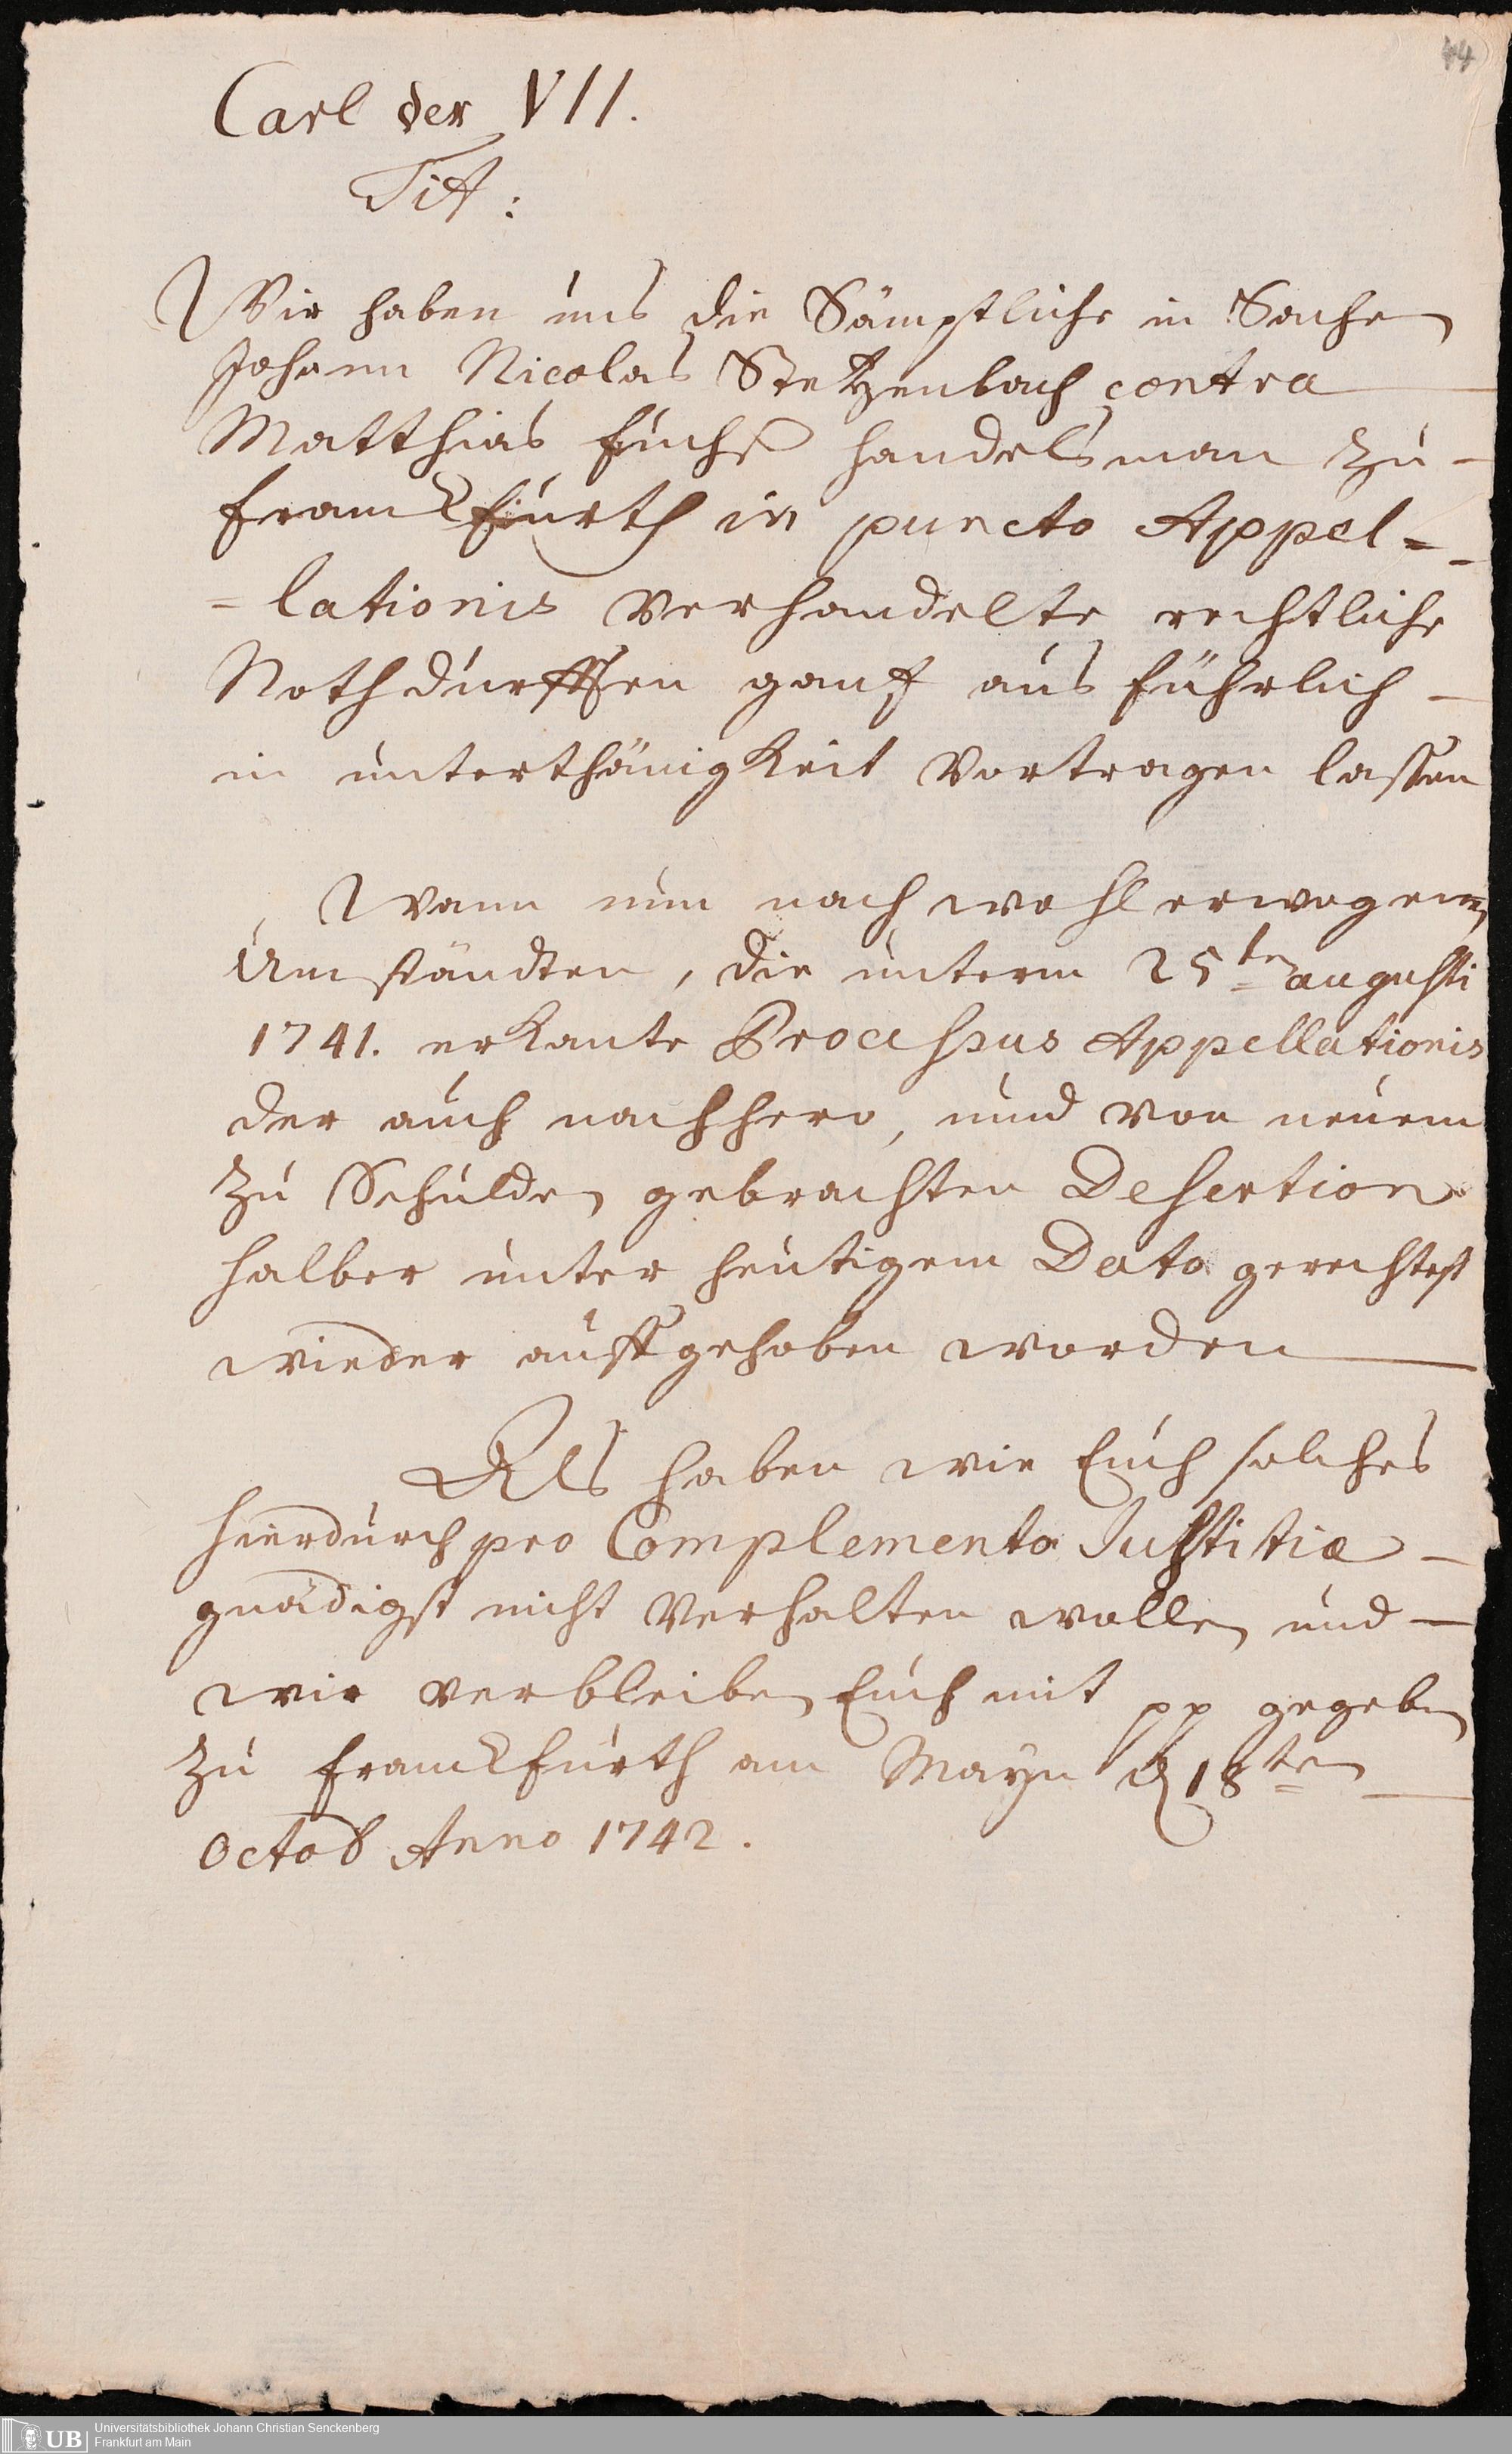 44
Carl der VII.
Tit:
Wir haben uns die Sämptliche in Sachen
Johann Nicolas Stetzenbach contra
Matthias Fuchß Handelsman zu
Franckfurth in puncto Appel=
=lationis verhandelte rechtliche
Nothdurfften gantz ausführlich
in unterthänigkeit vortragen lassen
Wann nun nach wohl erwogenen
Umständten, die unterm 25ten augusti
1741. erkante Processus Appellationis
der auch nachhero, und von neuem
zu Schulden gebrachten Desertion
halber unter heutigem Dato gerechtest
wieder auffgehoben worden
Als haben wir Euch solches
hierdurch pro Complemento Justitiæ
gnädigst nicht verhalten wollen und
wir verbleiben Euch mit pp gegeben
zu Franckfurth am Mayn d 18ten
Octob Anno 1742.
UB
Universitätsbibliothek Johann Christian Senckenberg
Frankfurt am Main